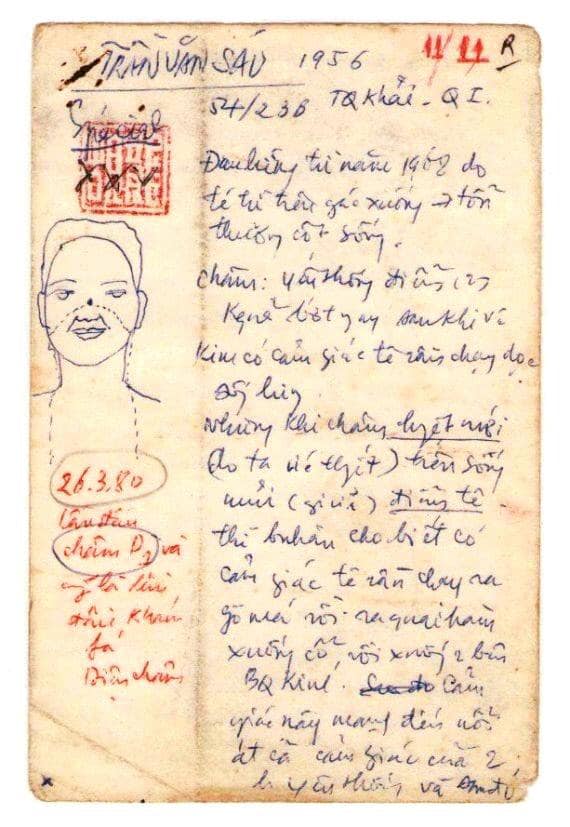 TRẦN VĂN SÁU 1956 11/11 R
54/23B TQ Khải - Q I.
Spécial
XXIV
Đau lưng từ năm 1968 do
té từ trên gác xuống → tổn
thương cột sống.
Châm: Yến thống điểm
Kquả bớt ngay sau khi
Kim có cảm giác tê rần chạy dọc
sống lưng
Nhưng khi châm huyệt mới
(do ta về thyết) trên sống
mũi (giữa) điểm tê
thì bnhân cho biết có
cảm giác tê rần chạy ra
gò má rồi ra quai hàm
xuống cổ, rồi xuống 2 bên
BQ Kinh. Cảm
giác này mạnh đến nỗi
át cả cảm giác của 2
h. yến thống và
26.3.80
lần đầu
châm và
khám
phá
Diện châm
x